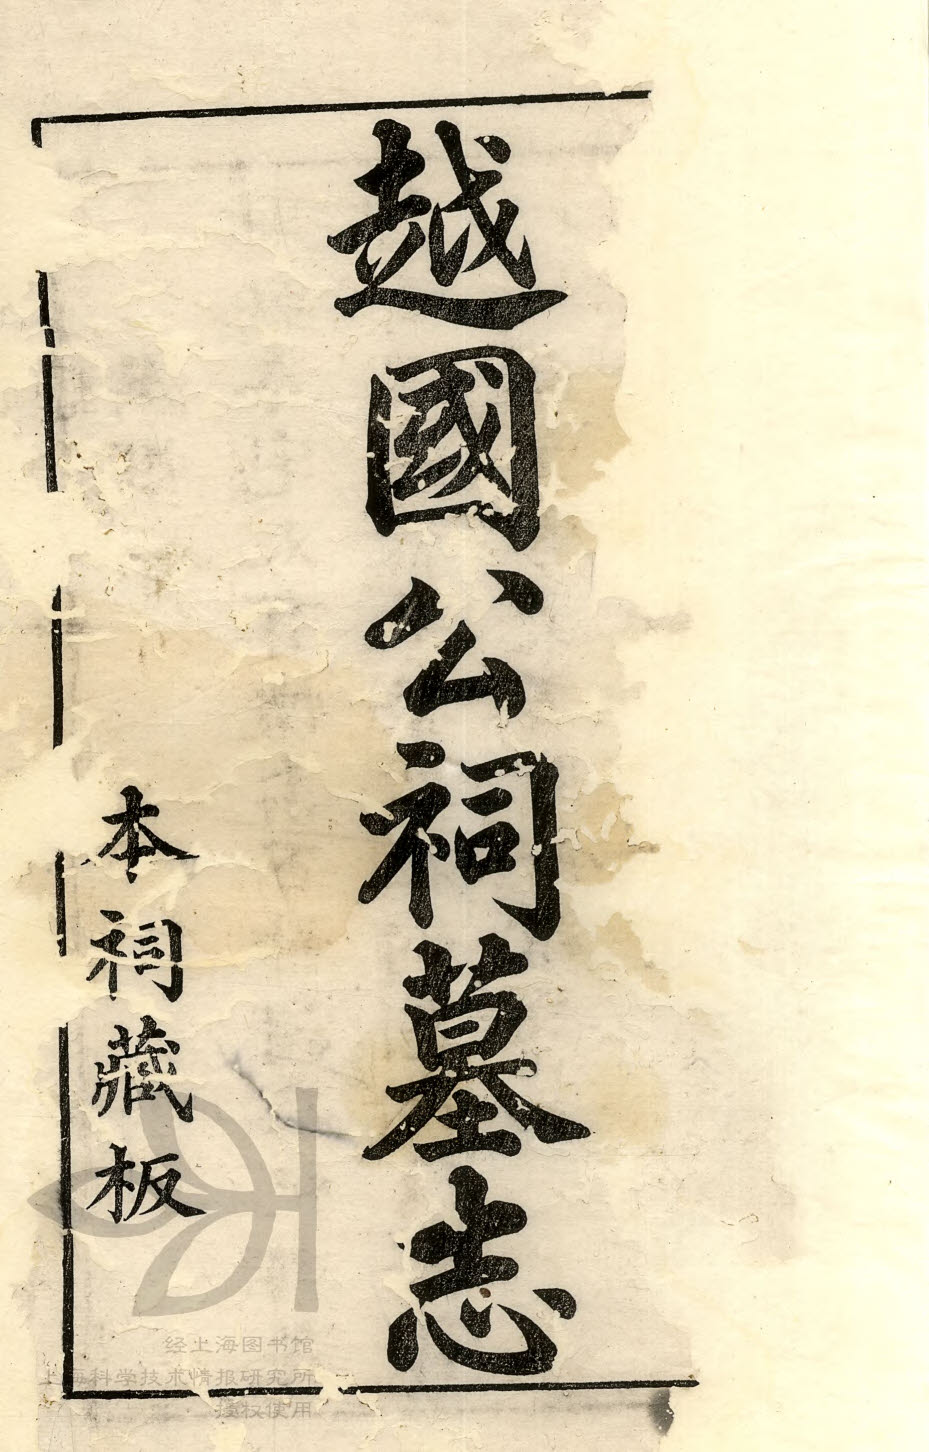 越國公祠墓志
本祠藏板
经上海图书馆
上海科学技术情报研究所
授权使用